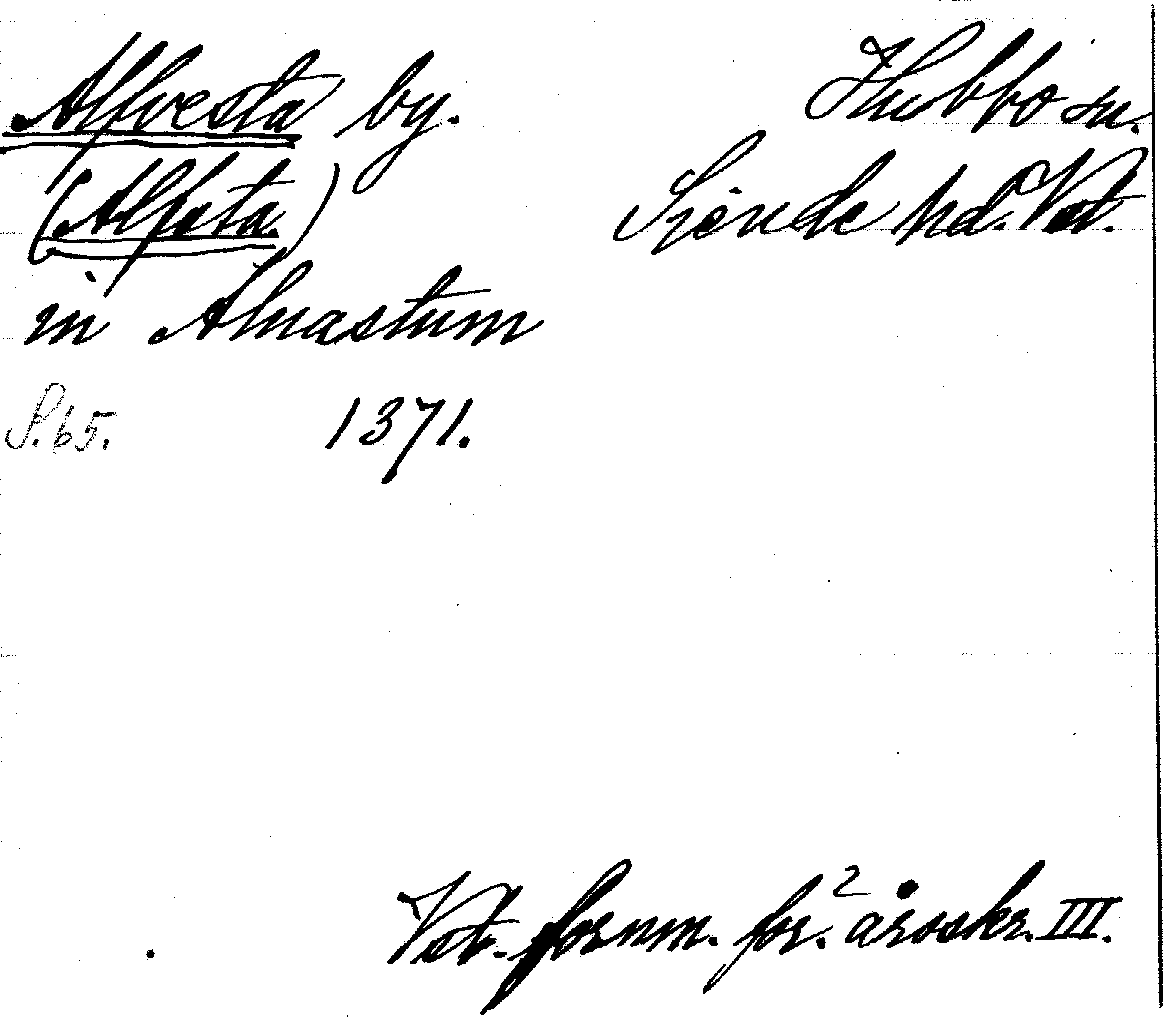 Alfvesta by.
Hubbo sn.
(Alfsta.)
Siende hd. Vstl.
in Aluastum
S. 65.
1371.
Vstl. fornm. för:s årsskr. III.